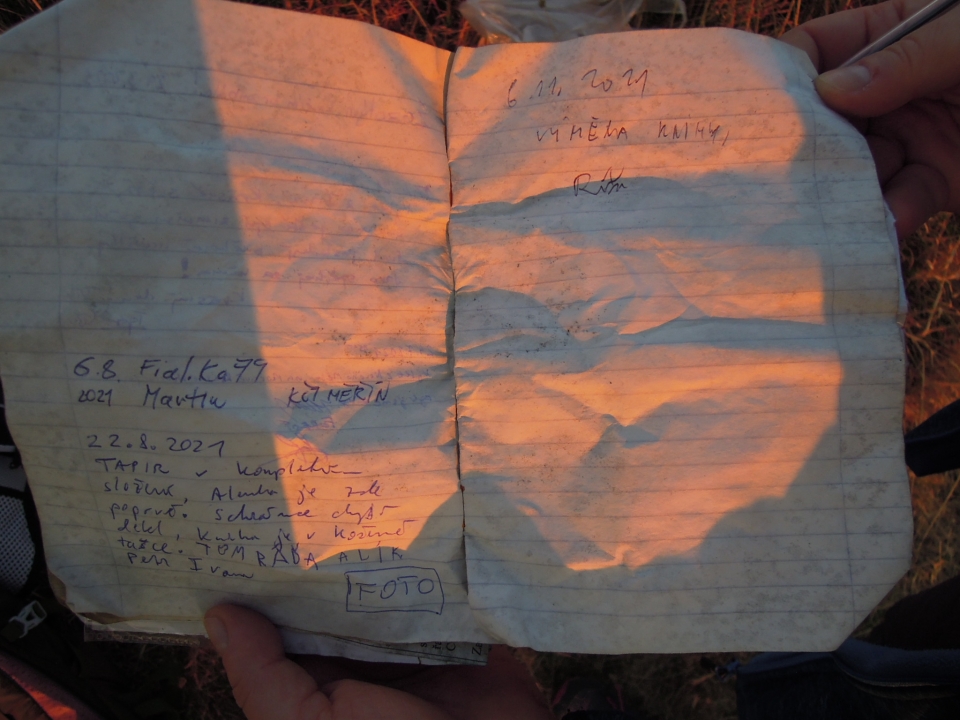 6.8. Fial.Ka.79
2021 Martin KČT MĚŘÍN
22.8.2021
TAPIR v kompletním
složení, Alenka je zde
poprvé. Schránce chybí
, kniha je v kožené
tašce. TOM RÁĎA ALÍK
Ivana
FOTO
6.11.2021
VÝMĚNA KNIHY,